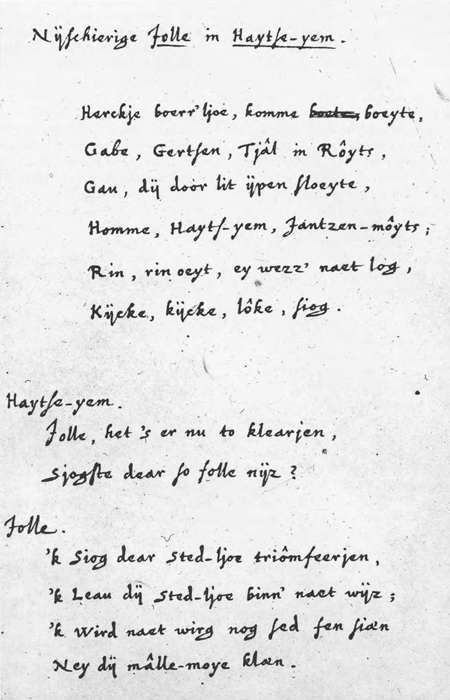 Nijschierige Jolle in Haytse-yem.
Herckje boerr'ljoe, komme boeyte,
Gabe, Gertsen, Tjâl in Rôyts,
Gau, dij door lit ijpen sloeyte,
Homme, Hayts-yem, Jantzen-môyts;
Rin, rin oeyt, ey wezz' naet log,
Kijcke, kijcke, lôke, siog.
Haytse-yem.
Jolle, het 's er nu to klearjen,
Sjogste dear so folle nijz?
Jolle.
'k Siog dear Sted-ljoe triômfeerjen,
'k Leau dij Sted-ljoe binn' naet wijz;
'k Wird naet wirg nog sed fen siæn
Ney dij mâlle-moye klæn.